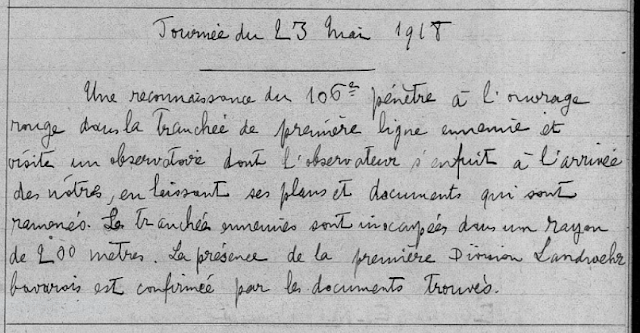 Journée du 23 Mai 1918
Une reconnaissance du 106e pénètre à l'ouvrage
rouge dans la tranchée de première ligne ennemie et
visite un observatoire dont l'observateur s'enfuit à l'arrivée
des nôtres, en laissant ses plans et documents qui sont
ramenés. Les tranchées ennemies sont inocupées dans un rayon
de 200 mètres. La présence de la première Division Landwehr
bavarois est confirmée par les documents trouvés.